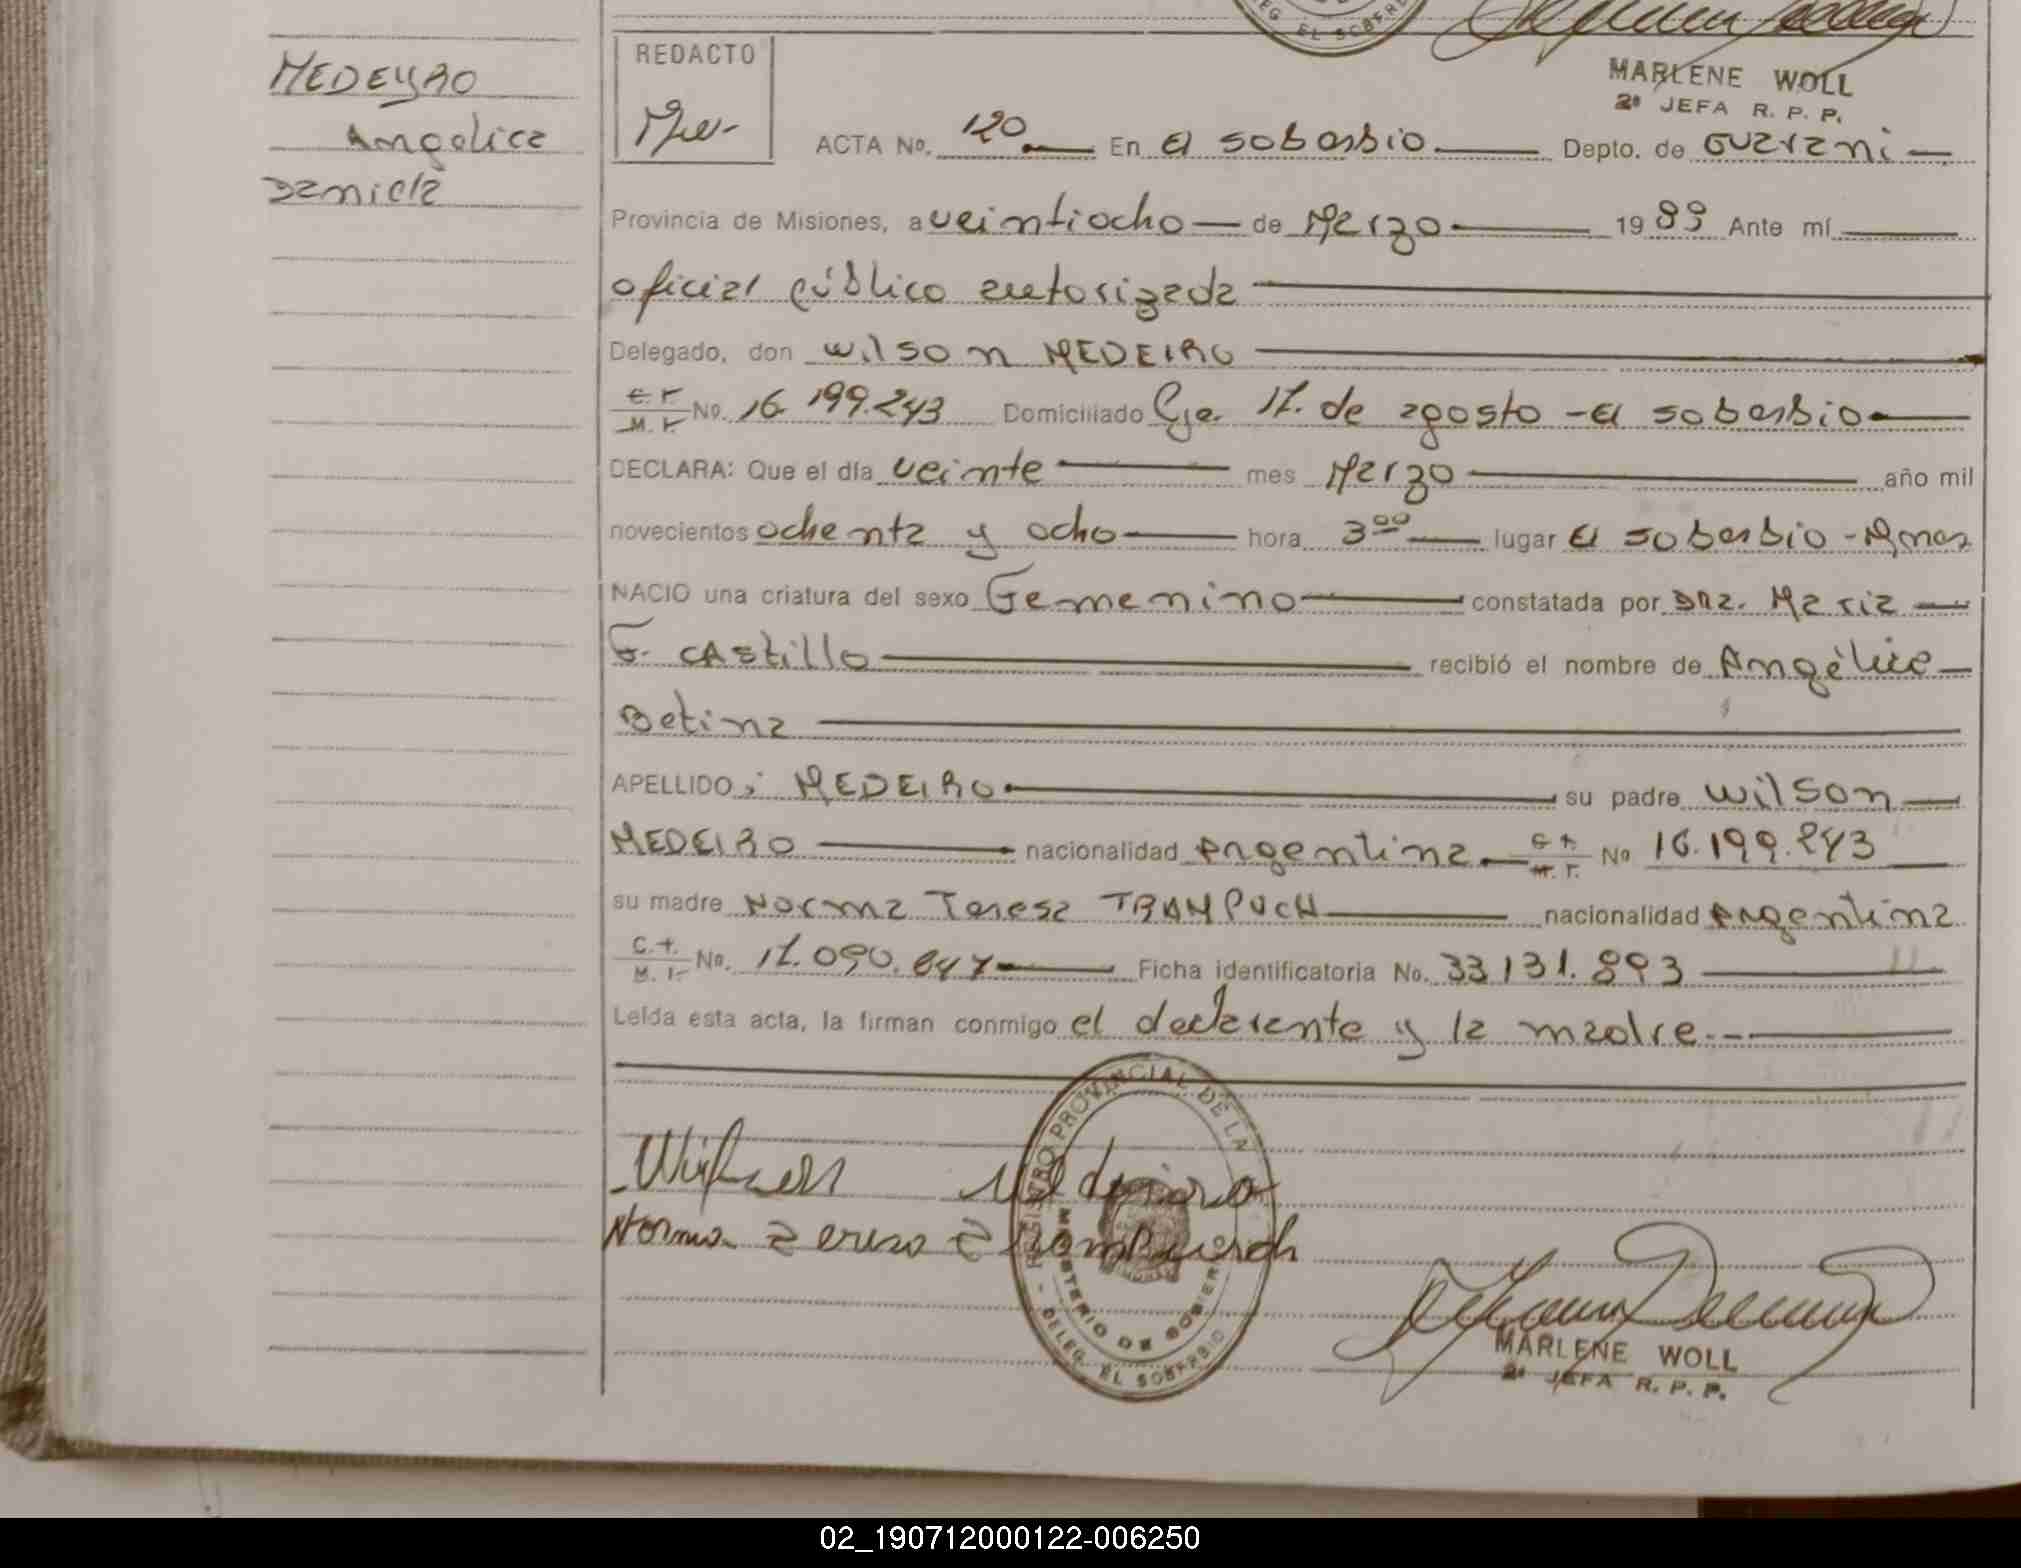 EG. EL SOBERB
MARLENE WOLL
2ª JEFA R. P. P.
MEDEYRO
Angelica
Daniela
REDACTO
ACTA No. 120 En El Soberbio Depto. de Guarani
Provincia de Misiones, a veintiocho de Marzo 1989 Ante mí
oficial público autorizada
Delegado, don Wilson MEDEIRO
No. 16.199.243 Domiciliado Pje. 17 de agosto - El Soberbio
DECLARA: Que el día veinte mes Marzo año mil
novecientos ochenta y ocho hora 3⁰⁰ lugar El Soberbio - Mnes
NACIO una criatura del sexo Femenino constatada por Dra. Maria
F. CAstillo recibió el nombre de Angélica
Betina
APELLIDO: MEDEIRO su padre Wilson
MEDEIRO nacionalidad Argentina No 16.199.243
M. I.
su madre Norma Teresa TRAMPUCH nacionalidad Argentina
C. I.
M. I. No. 17.090.847 Ficha identificatoria No. 33.131.893
Leída esta acta, la firman conmigo el declarante y la madre.
Wilson Medeiro
Norma Teresa Trampusch
REGISTRO PROVINCIAL DE LA
MINISTERIO DE GOBIER
DELEG. EL SOBERBIO
MARLENE WOLL
2ª JEFA R. P. P.
02_190712000122-006250